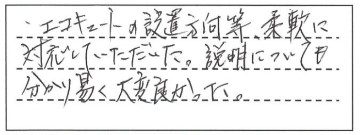 ・エコキュートの設置方向等、柔軟に
対応していただいた。説明についても
分かり易く大変良かった。